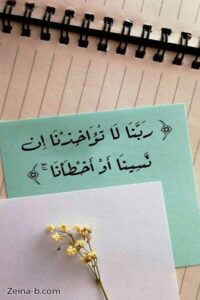 ﴿ رَبَّنَا لَا تُؤَاخِذْنَا إِنْ
نَّسِينَا أَوْ أَخْطَأْنَا ۚ ﴾
Zeina-b.com